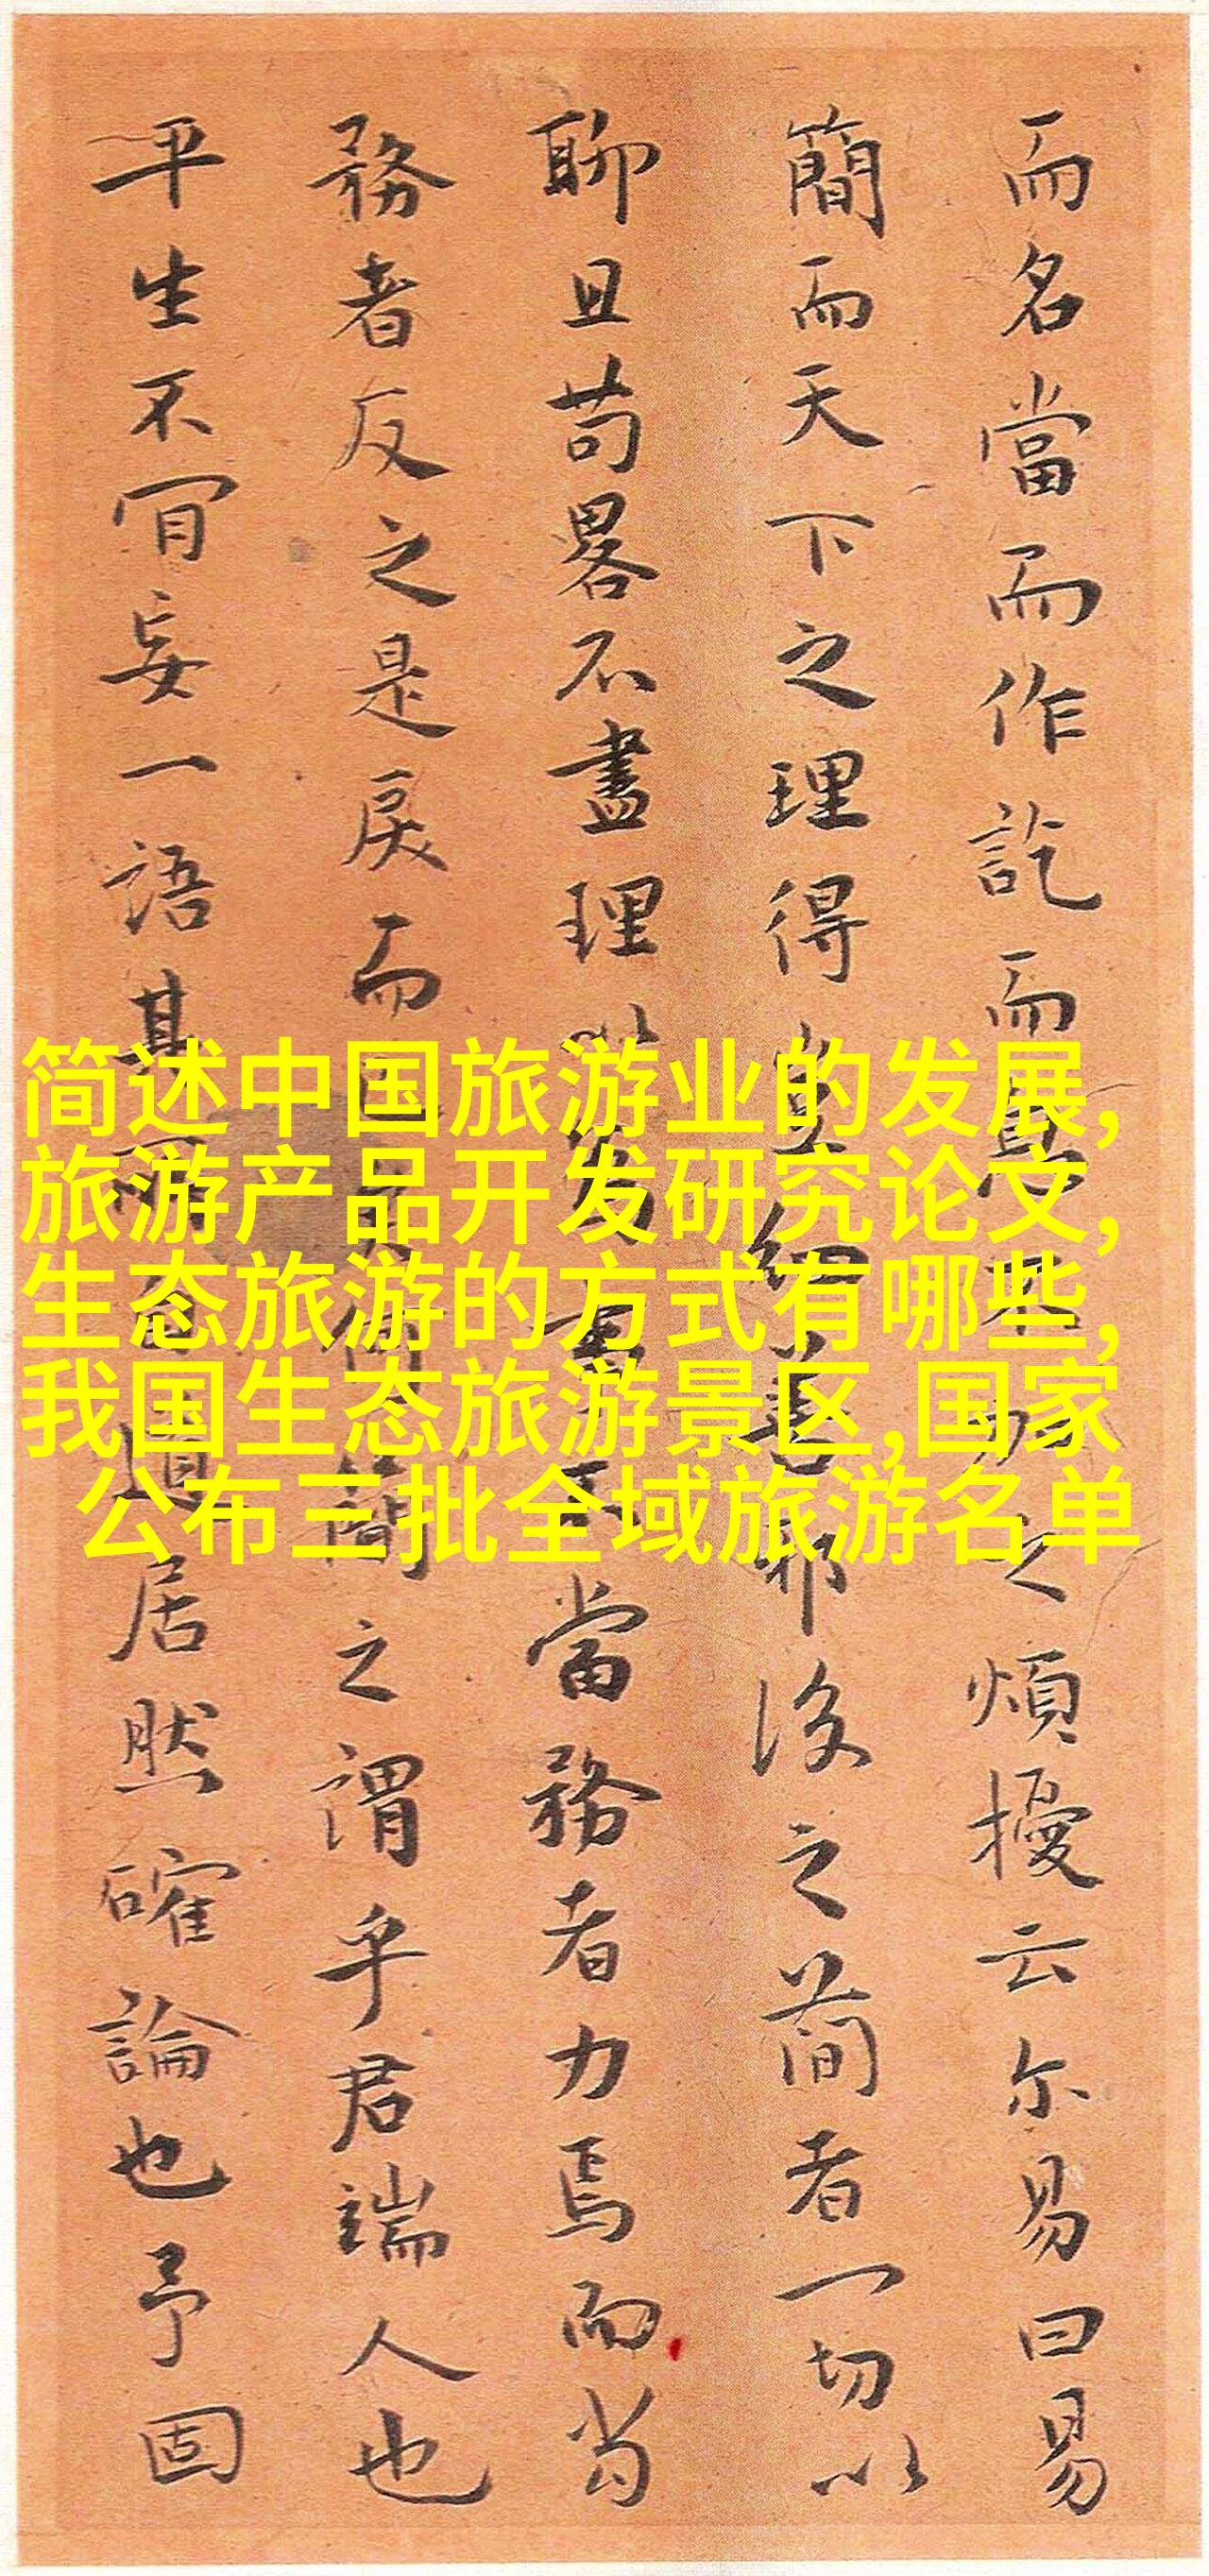 而名當而作訖而之煩擾云尔易曰易
簡而天下之理得細耶後之簡者一切以
聊且苟畧不盡理當務者力焉而當
務者反之是戾而簡之謂乎君端人也
平生不肎妄一語其居然確論也予固
简述中国旅游业的发展,
旅游产品开发研究论文,
生态旅游的方式有哪些,
我国生态旅游景区,国家
公布三批全域旅游名单